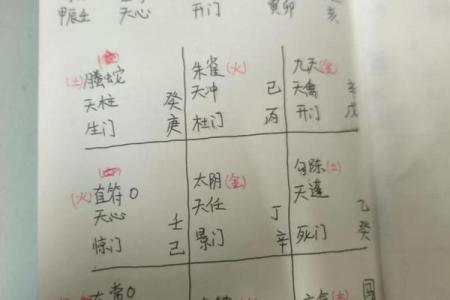 甲辰壬 天心 开门 亥
(土)螣蛇 朱雀(火) 九天(金)
天柱 癸 天冲 己 天禽 辛
生门 庚 杜门 丙 开门 戊
(火)直符O 太阴(金) 勾陈(土)
天心 壬 天任 丁 天蓬 乙
惊门 己 景门 辛 死门 癸
常O